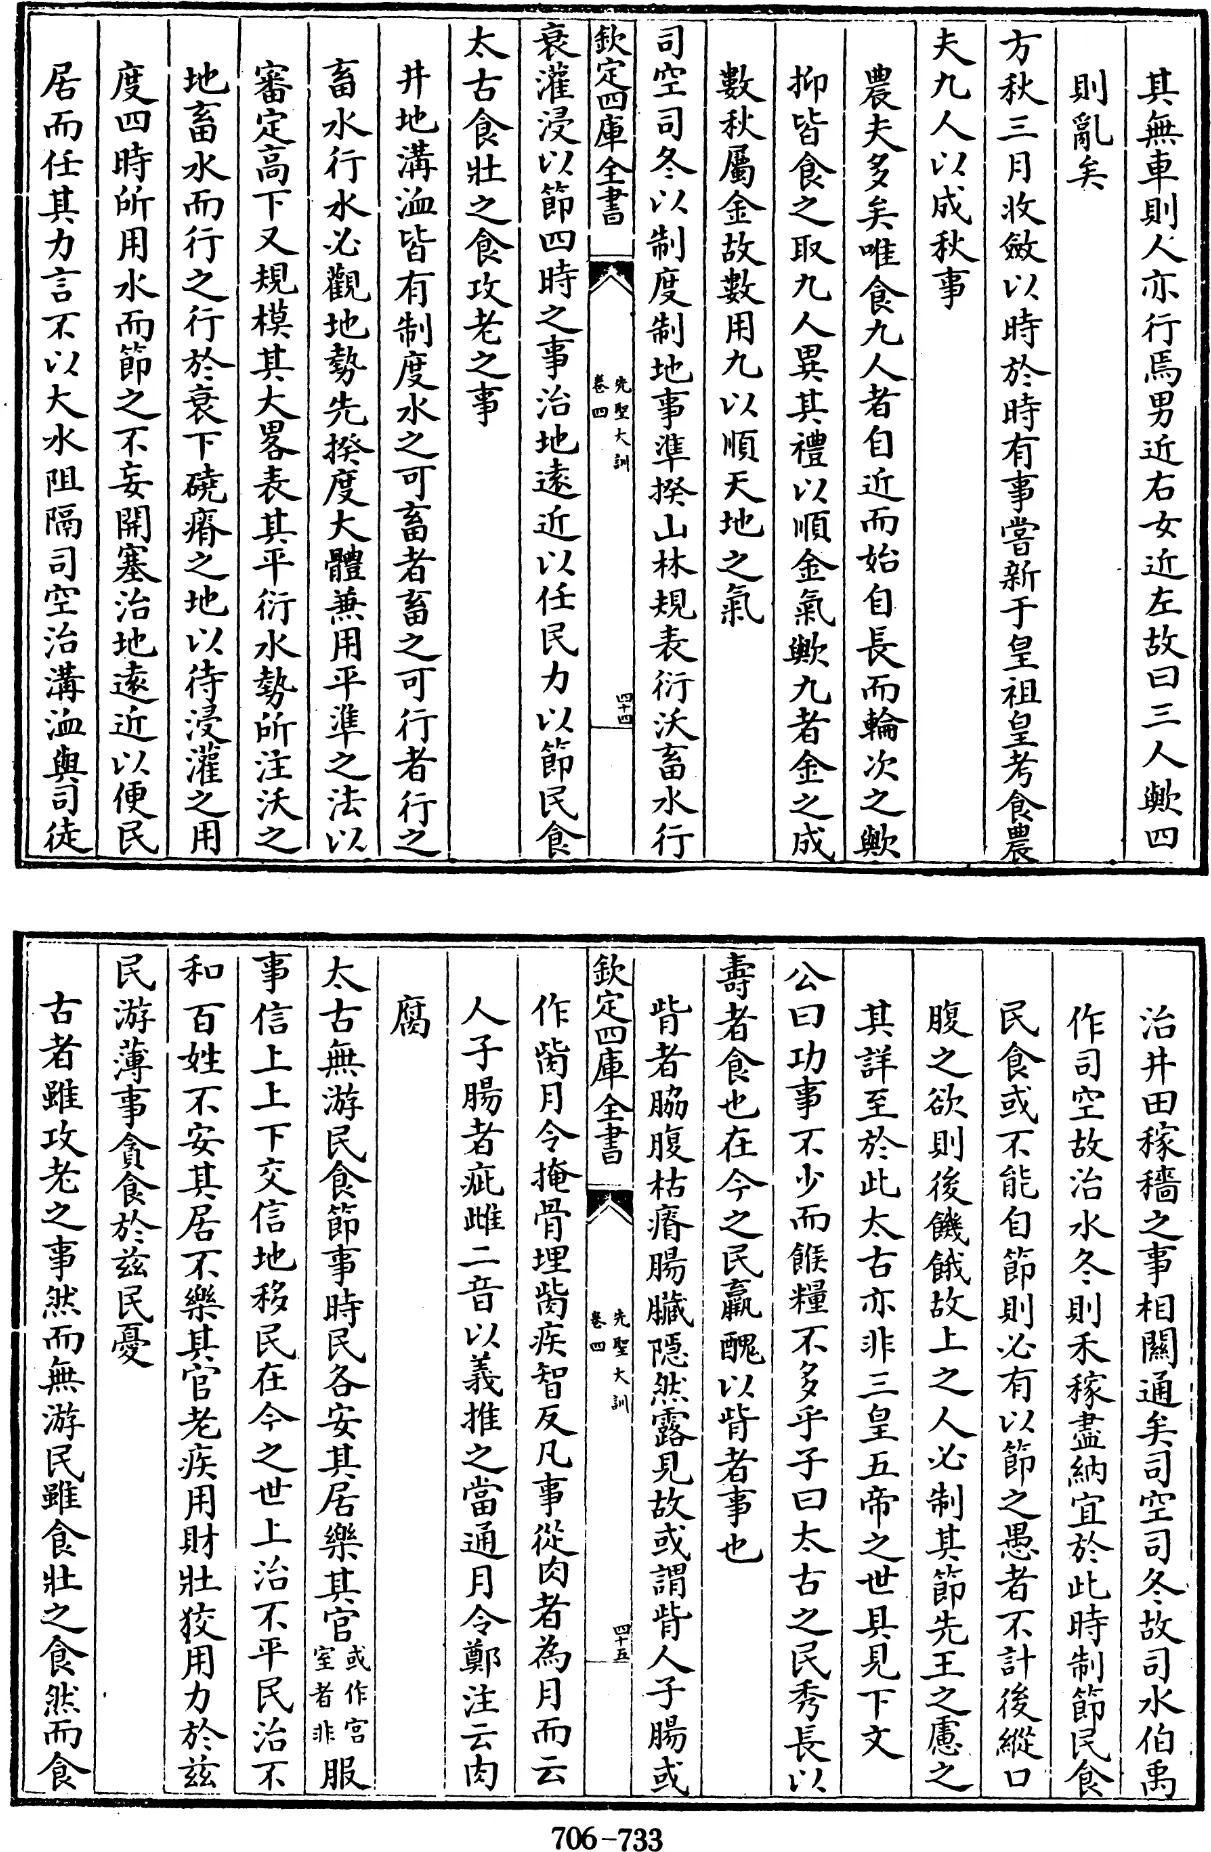 其無車則人亦行焉男近右女近左故曰三人歟四
則亂矣
方秋三月收斂以時於時有事嘗新于皇祖皇考食農
夫九人以成秋事
農夫多矣唯食九人者自近而始自長而輪次之歟
抑皆食之取九人異其禮以順金氣歟九者金之成
數秋屬金故數用九以順天地之氣
司空司冬以制度制地事準揆山林規表衍沃畜水行
欽定四庫全書
先聖大訓
卷四
四十四
衰灌浸以節四時之事治地遠近以任民力以節民食
太古食壯之食攻老之事
井地溝洫皆有制度水之可畜者畜之可行者行之
畜水行水必觀地勢先揆度大體兼用平準之法以
審定高下又規模其大畧表其平衍水勢所注沃之
地畜水而行之行於衰下磽瘠之地以待浸灌之用
度四時所用水而節之不妄開塞治地遠近以便民
居而任其力言不以大水阻隔司空治溝洫與司徒
治井田稼穡之事相關通矣司空司冬故司水伯禹
作司空故治水冬則禾稼盡納宜於此時制節民食
民食或不能自節則必有以節之愚者不計後縱口
腹之欲則後饑餓故上之人必制其節先王之慮之
其詳至於此太古亦非三皇五帝之世具見下文
公曰功事不少而餱糧不多乎子曰太古之民秀長以
壽者食也在今之民羸醜以胔者事也
胔者脇腹枯瘠腸臟隱然露見故或謂胔人子腸或
欽定四庫全書
先聖大訓
卷四
四十五
作胔月令掩骨埋胔疾智反凡事從肉者為月而云
人子腸者疵雌二音以義推之當通月令鄭注云肉
腐
太古無游民食節事時民各安其居樂其官或作宮室者非服
事信上上下交信地移民在今之世上治不平民治不
和百姓不安其居不樂其官老疾用財壯狡用力於茲
民游薄事貪食於茲民憂
古者雖攻老之事然而無游民雖食壯之食然而食
706-733